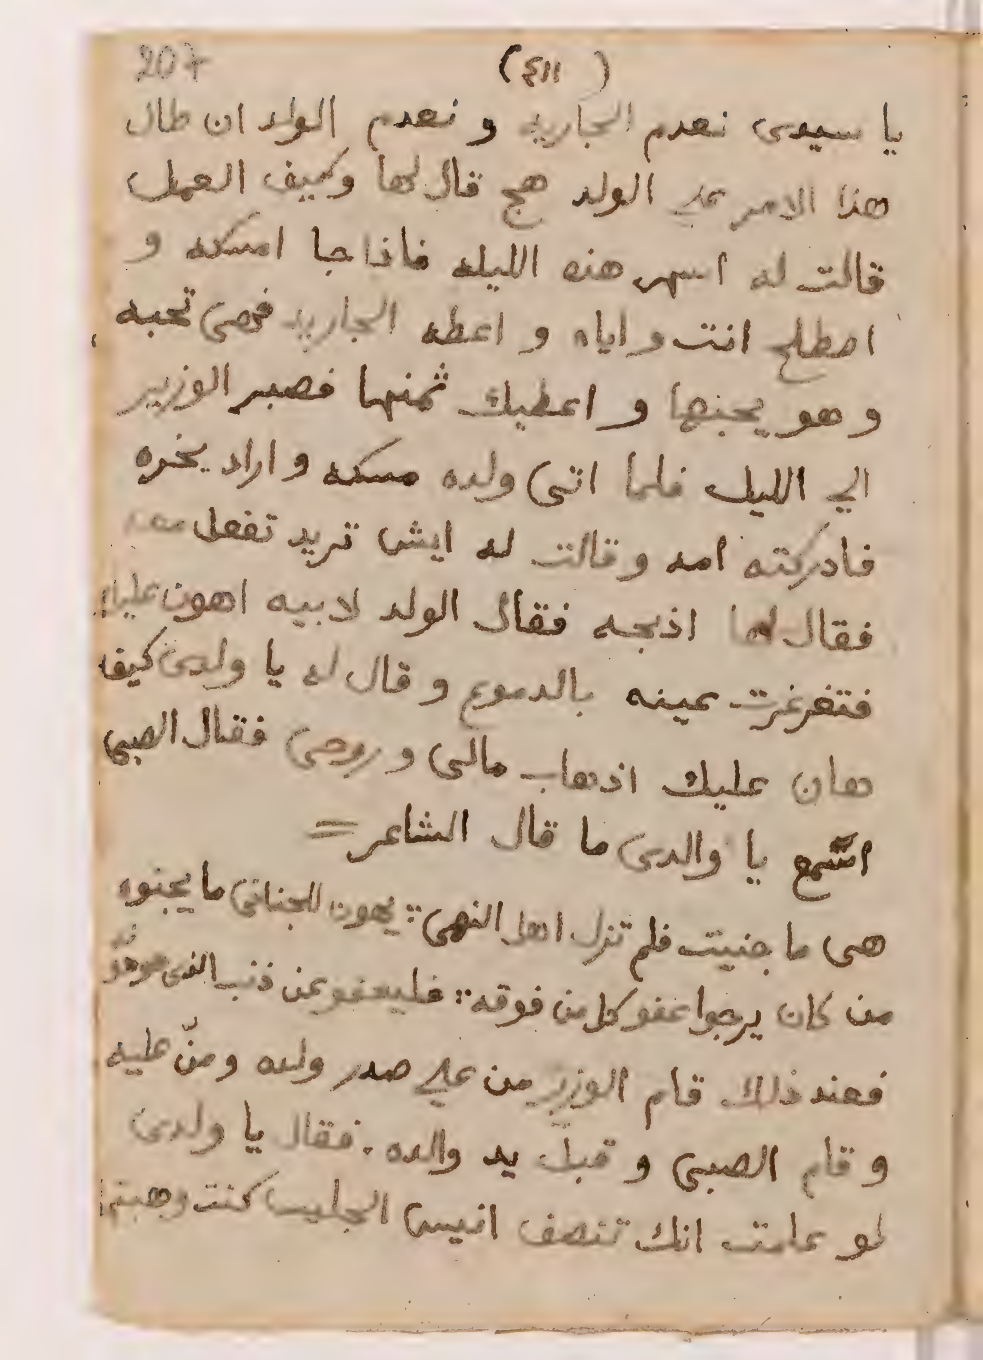 207 (٤١١)
يا سيدى نعدم الجاريه و نعدم الولد ان طال
هذا الامر على الولد هج قال لها وكيف العمل
قالت له اسهر هذه الليله فاذا جا امسكه و
اصطلح انت و اياه و اعطه الجاريه فهى تحبه
و هو يحبها و اعطيك ثمنها فصبر الوزير
الى الليل فلما اتى ولده مسكه و اراد يخره
فادركته امه و قالت له ايش تريد تفعل معه
فقال لها اذبحه فقال الولد لابيه اهون عليك
فتغرغرت عينه بالدموع و قال له يا ولدى كيف
هان عليك اذهاب مالى و روحى فقال الصبى
اسمع يا والدى ما قال الشاعر =
هى ما جنيت فلم تزل اهل النهى :: يهون للجنانى ما يجنوه
من كان يرجوا عفو كل من فوقه :: فليعفو عن ذنب الذى هو
فعند ذلك قام الوزير من على صدر ولده و منّ عليه
و قام الصبى و قبل يد والده . فقال يا ولدى
لو علمت انك تنصف انيس الجليس كنت وهبتها